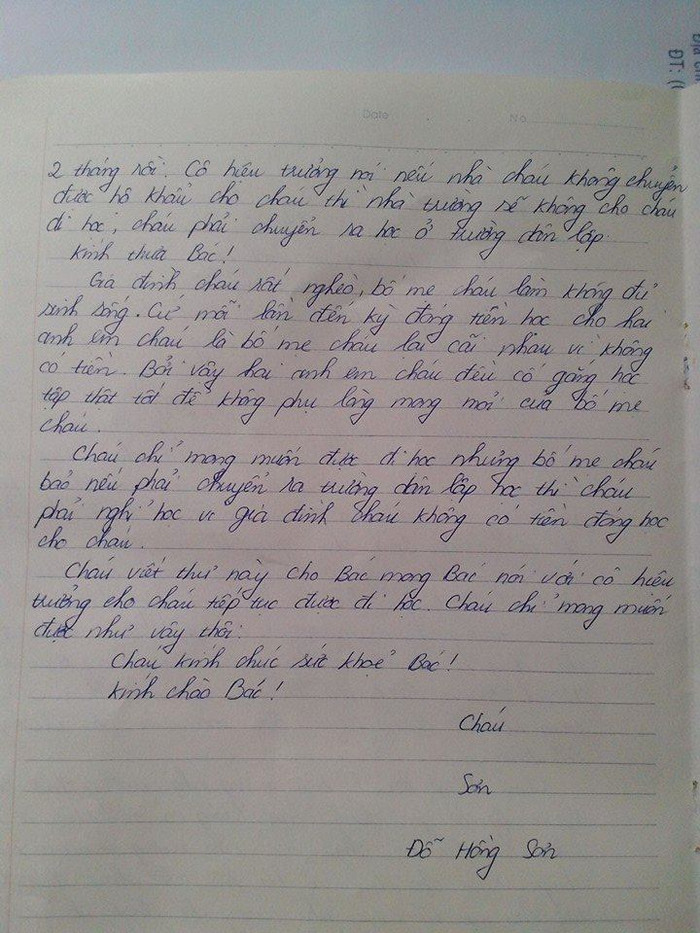 Địa chỉ
ĐT: (
Date
No
2 tháng rồi. Cô hiệu trưởng nói nếu nhà cháu không chuyển
được hộ khẩu cho cháu thì nhà trường sẽ không cho cháu
đi học, cháu phải chuyển ra học ở trường dân lập.
Kính thưa Bác!
Gia đình cháu rất nghèo, bố mẹ cháu làm không đủ
sinh sống. Cứ mỗi lần đến kỳ đóng tiền học cho hai
anh em cháu là bố mẹ cháu lại cãi nhau vì không
có tiền. Bởi vậy hai anh em cháu đều cố gắng học
tập thật tốt để không phụ lòng mong mỏi của bố mẹ
cháu.
Cháu chỉ mong muốn được đi học nhưng bố mẹ cháu
bảo nếu phải chuyển ra trường dân lập học thì cháu
phải nghỉ học vì gia đình cháu không có tiền đóng học
cho cháu.
Cháu viết thư này cho Bác mong Bác nói với cô hiệu
trưởng cho cháu tiếp tục được đi học. Cháu chỉ mong muốn
được như vậy thôi.
Cháu kính chúc sức khoẻ Bác!
Kính chào Bác!
Cháu
Sơn
Đỗ Hồng Sơn